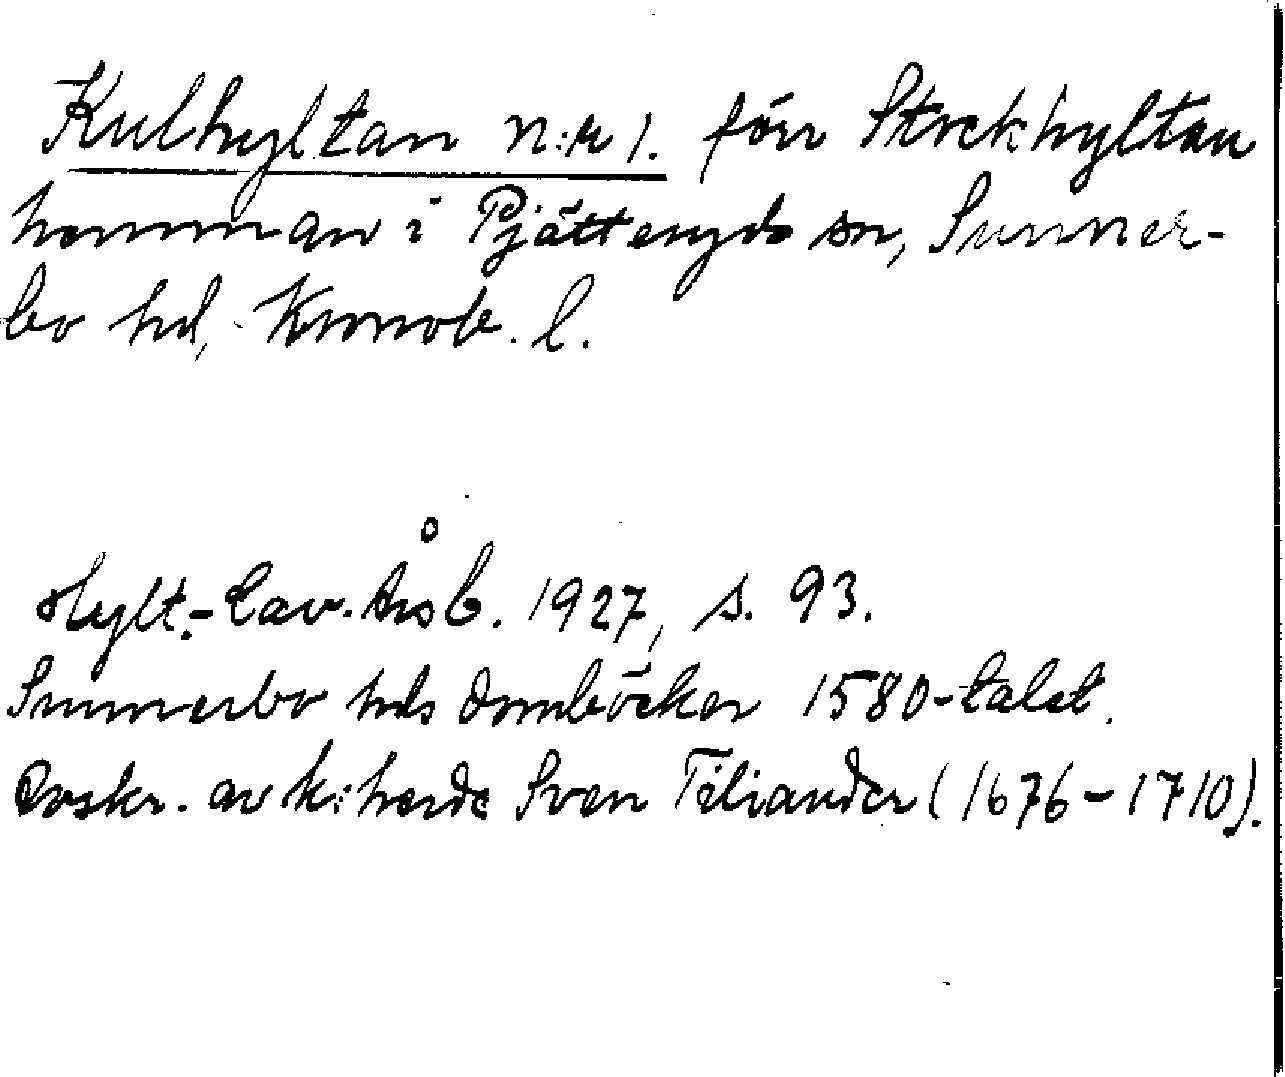 Kulhyltan n:r 1. förr Stockhyltan
hemman i Pjätteryds sn, Sunner-
bo hd, Kronob. l.
Hylt.-Cav. Årsb. 1927, s. 93.
Sunnerbo hds domböcker 1580-talet.
av k:herde Sven Tiliander (1676-1710).